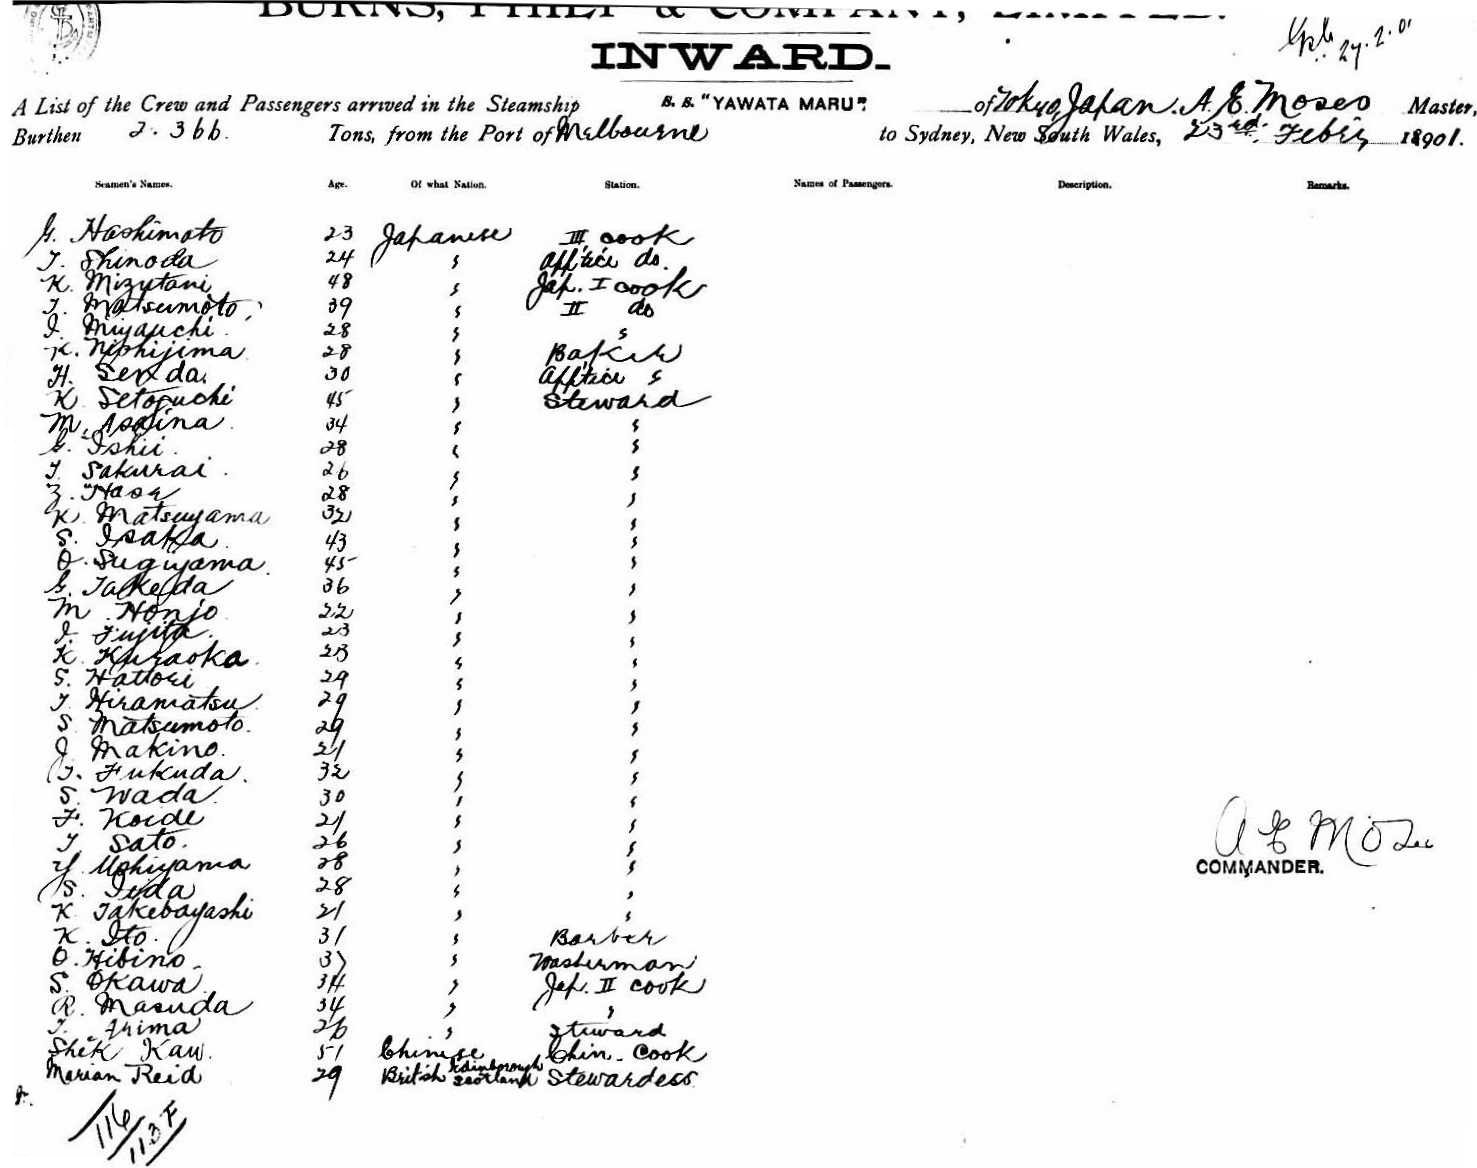 BURNS, PHILP & COMPANY, LIMITED.
27.2.01
INWARD.
A List of the Crew and Passengers arrived in the Steamship S. S. "YAWATA MARU". of Tokyo, Japan. A. E. Moses Master,
Burthen 2.366. Tons, from the Port of Melbourne to Sydney, New South Wales, 23rd. Febry 1901.
Seamen's Names. Age. Of what Nation. Station. Names of Passengers. Description. Remarks.
G. Hashimoto 23 Japanese III cook
T. Shinoda 24 " App'tice do.
K. Mizutani 48 " Jap. I cook
T. Matsumoto 39 " II do
I. Miyauchi 28 " "
K. Nishijima 28 " Baker
H. Senda 30 " App'tice "
K. Setoguchi 45 " Steward
M. Asajina 34 " "
G. Ishii 28 " "
T. Sakurai 26 " "
Z. Hase 28 " "
K. Matsuyama 32 " "
S. Isaka 43 " "
O. Sugiyama 45 " "
G. Takeda 36 " "
M Honjo 22 " "
I. Fujita 23 " "
K. Kuraoka 23 " "
S. Hattori 29 " "
T. Hiramatsu 29 " "
S. Matsumoto. 29 " "
J. Makino. 21 " "
T. Fukuda. 32 " "
S. Wada 30 " "
F. Koide 21 " "
T Sato. 26 " "
Y. Ushiyama 28 " "
S. Iida 28 " "
K Takebayashi 21 " "
K. Ito. 31 " Barber
O. Hibino 37 " Washerman
S. Okawa 34 " Jap. II cook
R. Masuda 34 " "
T. Arima 26 " Steward
Shek Kaw. 51 Chinese Chin. Cook
Marian Reid 29 British Edinborough Scotland Stewardess
A E Moses
COMMANDER.
116
113 F